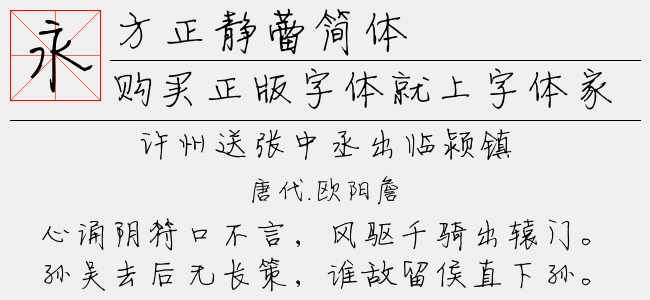 永
方正静蕾简体
购买正版字体就上字体家
许州送张中丞出临颍镇
唐代.欧阳詹
心诵阴符口不言，风驱千骑出辕门。
孙吴去后无长策，谁敌留侯直下孙。